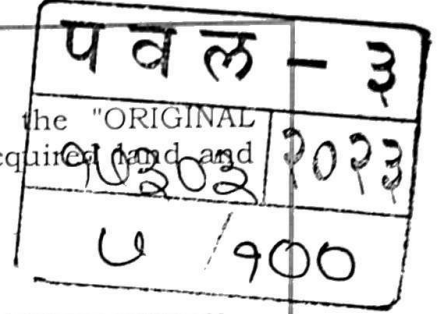 पवल - ३
the "ORIGINAL
cquired land and
१७३०३ २०२३
७ / १००